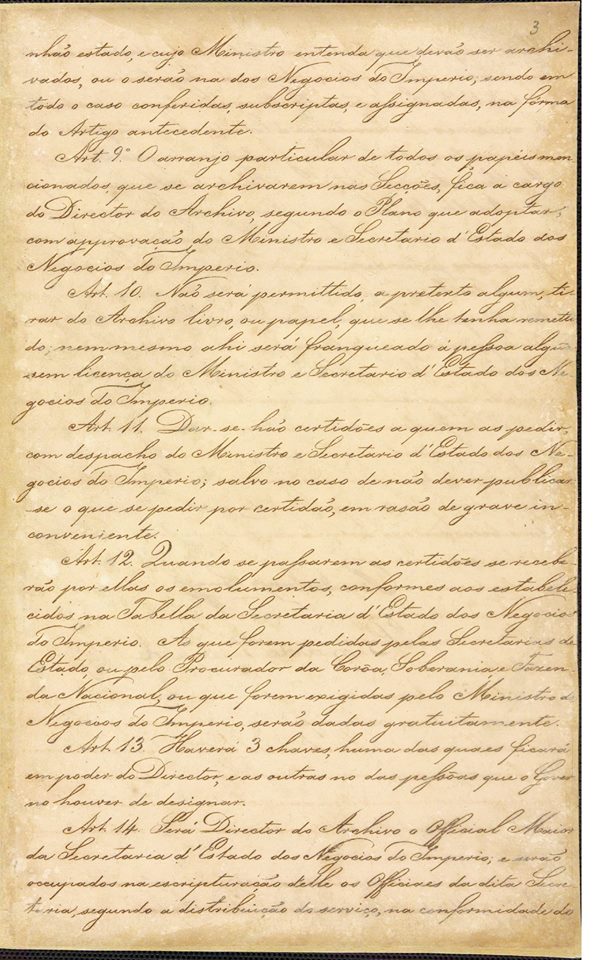 3
nhão estado, e cujo Ministro entenda que devão ser archi-
vados, ou o serão na dos Negocios do Imperio; sendo em
todo o caso conferidas, subscriptas, e assignadas, na forma
do Artigo antecedente.
Art. 9.º O arranjo particular de todos os papeis men
cionados, que se archivarem nas Secções, fica a cargo
do Director do Archivo, segundo o Plano que adoptar,
com approvação do Ministro e Secretario d'Estado dos
Negocios do Imperio.
Art. 10. Não será permittido, a pretexto algum, ti-
rar do Archivo livro, ou papel, que se lhe tenha remetti
do; nem mesmo ahi será franqueado á pessoa algũa
sem licença do Ministro e Secretario d'Estado dos Ne
gocios do Imperio.
Art. 11. Dar-se-hão certidões a quem as pedir,
com despacho do Ministro e Secretario d'Estado dos Ne-
gocios do Imperio; salvo no caso de não dever publicar
-se o que se pedir por certidão, em rasão de grave in-
conveniente.
Art. 12. Quando se passarem as certidões se recebe-
rão por ellas os emolumentos, conformes aos estabele
cidos na Tabella da Secretaria d'Estado dos Negocios
do Imperio. As que forem pedidas pelas Secretarias de
Estado ou pelo Procurador da Corôa, Soberania e Fazen
da Nacional, ou que forem exigidas pelo Ministro dos
Negocios do Imperio, serão dadas gratuitamente.
Art. 13. Haverá 3 chaves, huma das quaes ficará
em poder do Director, e as outras no das pessôas que o Gover
no houver de designar.
Art. 14. Será Director do Archivo o Official Maior
da Secretaria d'Estado dos Negocios do Imperio; e serão
occupados na escripturação delle os Officiaes da dita Secre
taria, segundo a distribuição do serviço, na conformidade do